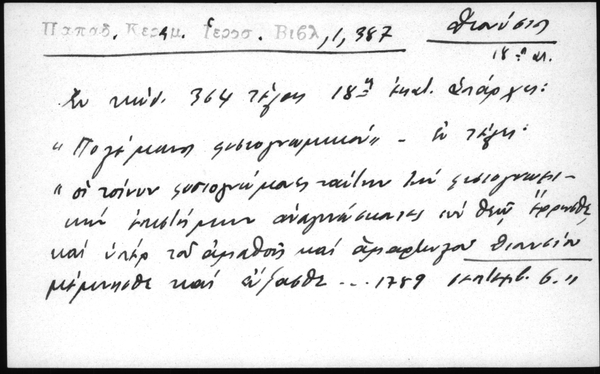 Παπαδ. Κεραμ. Ιεροσ. Βιβλ, 1, 387
Διονύσιος
18ος αι.
Ἐν κώδ. 364 τέλους 18ης ἑκατ. ὑπάρχει:
"Πολέμωνος φυσιογνωμικού" - Ἐν τέλει:
"οἱ τοίνυν φυσιογνώμονες ταύτην τὴν φυσιογνωμι-
κὴν ἐπιστήμην ἀναγινώσκοντες σὺν θεῷ ἔρρωσθε
καὶ ὑπὲρ τοῦ ἀμαθοῦς καὶ ἁμαρτωλοῦ Διονυσίου
μέμνησθε καὶ εὔξασθε ... 1789 σεπτεμβ. 6."